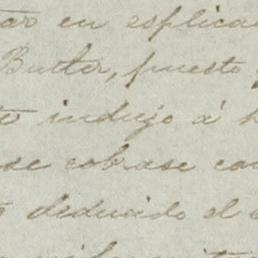 tar en esplica
Butler, puesto
to indujo á h
se cobrase con
deducido el c